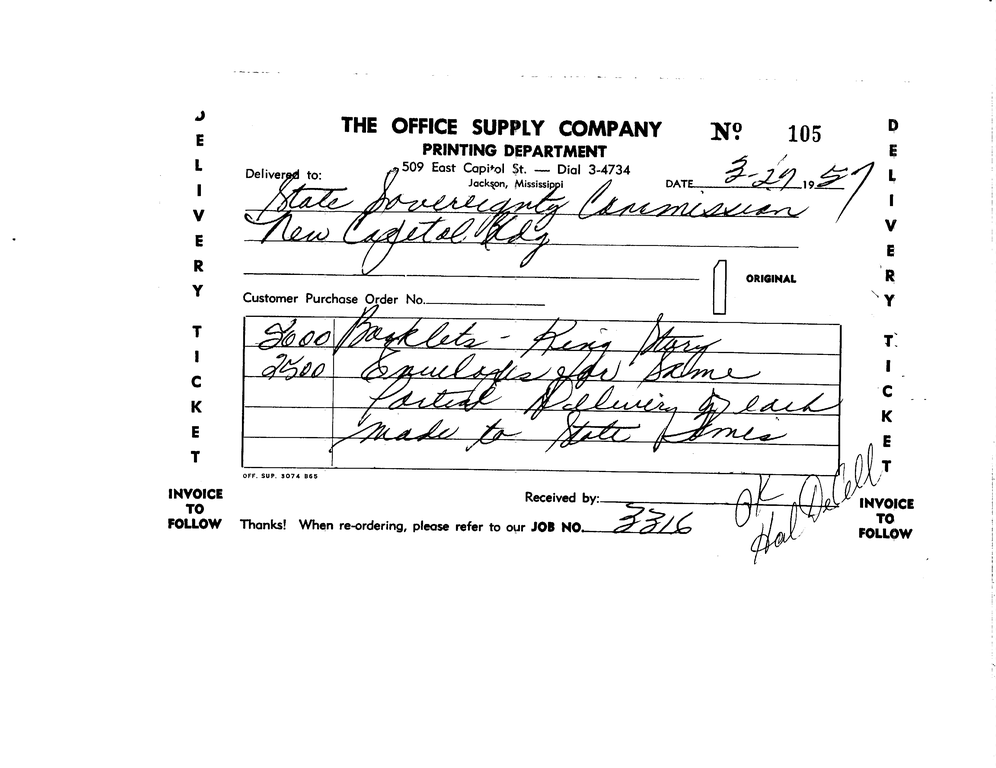 THE OFFICE SUPPLY COMPANY
Nº 105
PRINTING DEPARTMENT
509 East Capitol St. — Dial 3-4734
Jackson, Mississippi
Delivered to:
DATE 3-29 1957
State Sovereignty Commission
New Capitol Bldg
ORIGINAL
Customer Purchase Order No.
Booklets - King Story
2500 Envelopes for Same
Partial Delivery of each
made to State
OFF. SUP. 3074 865
Received by:
OK
Hal DeCell
Thanks! When re-ordering, please refer to our JOB NO. 3316
DELIVERY TICKET
INVOICE
TO
FOLLOW
DELIVERY TICKET
INVOICE
TO
FOLLOW